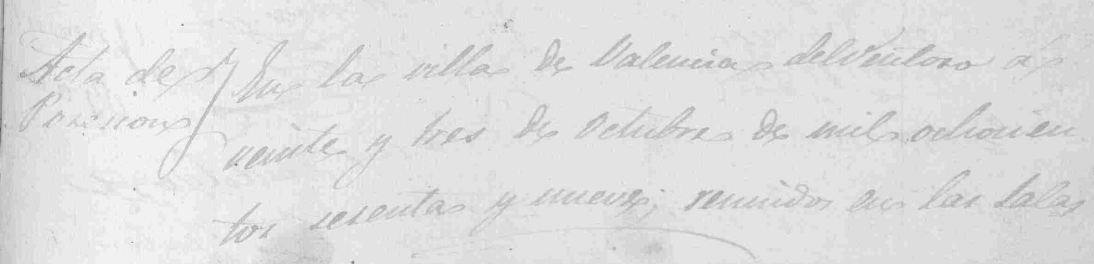 Acta de
Posesion
En la villa de Valencia del Ventoso á
veinte y tres de Octubre de mil ochocien
tos sesenta y nueve; reunidos en las Salas